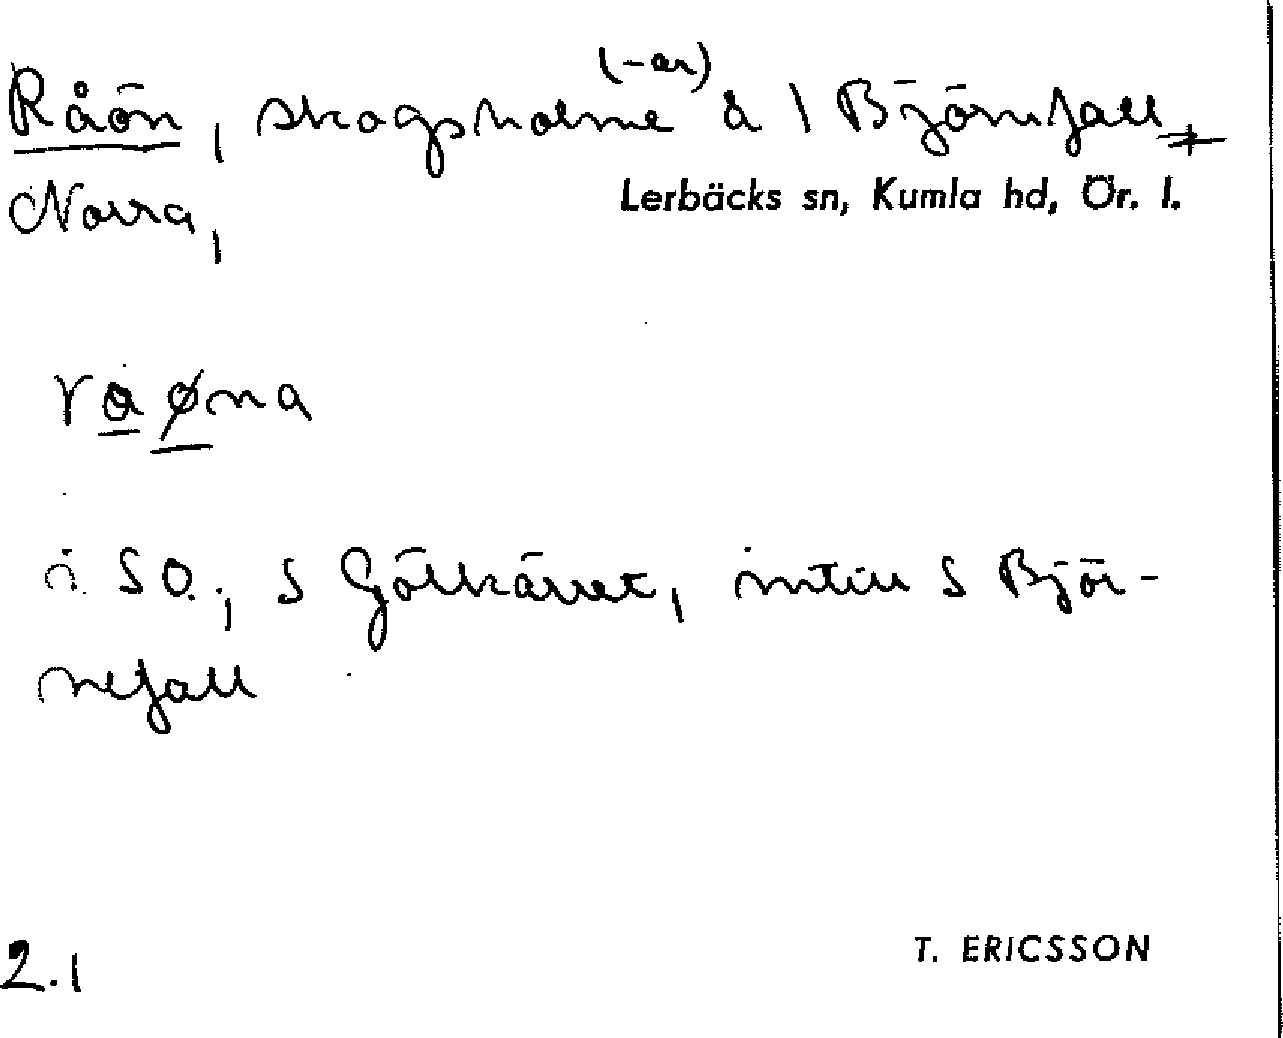 (-ar)
Råön, skogsholme å 1 Björnfall
Norra,
Lerbäcks sn, Kumla hd, Ör. l.
rå øna
i SO., S Gölkärret, intill S Björ-
nefall
2.1
T. ERICSSON